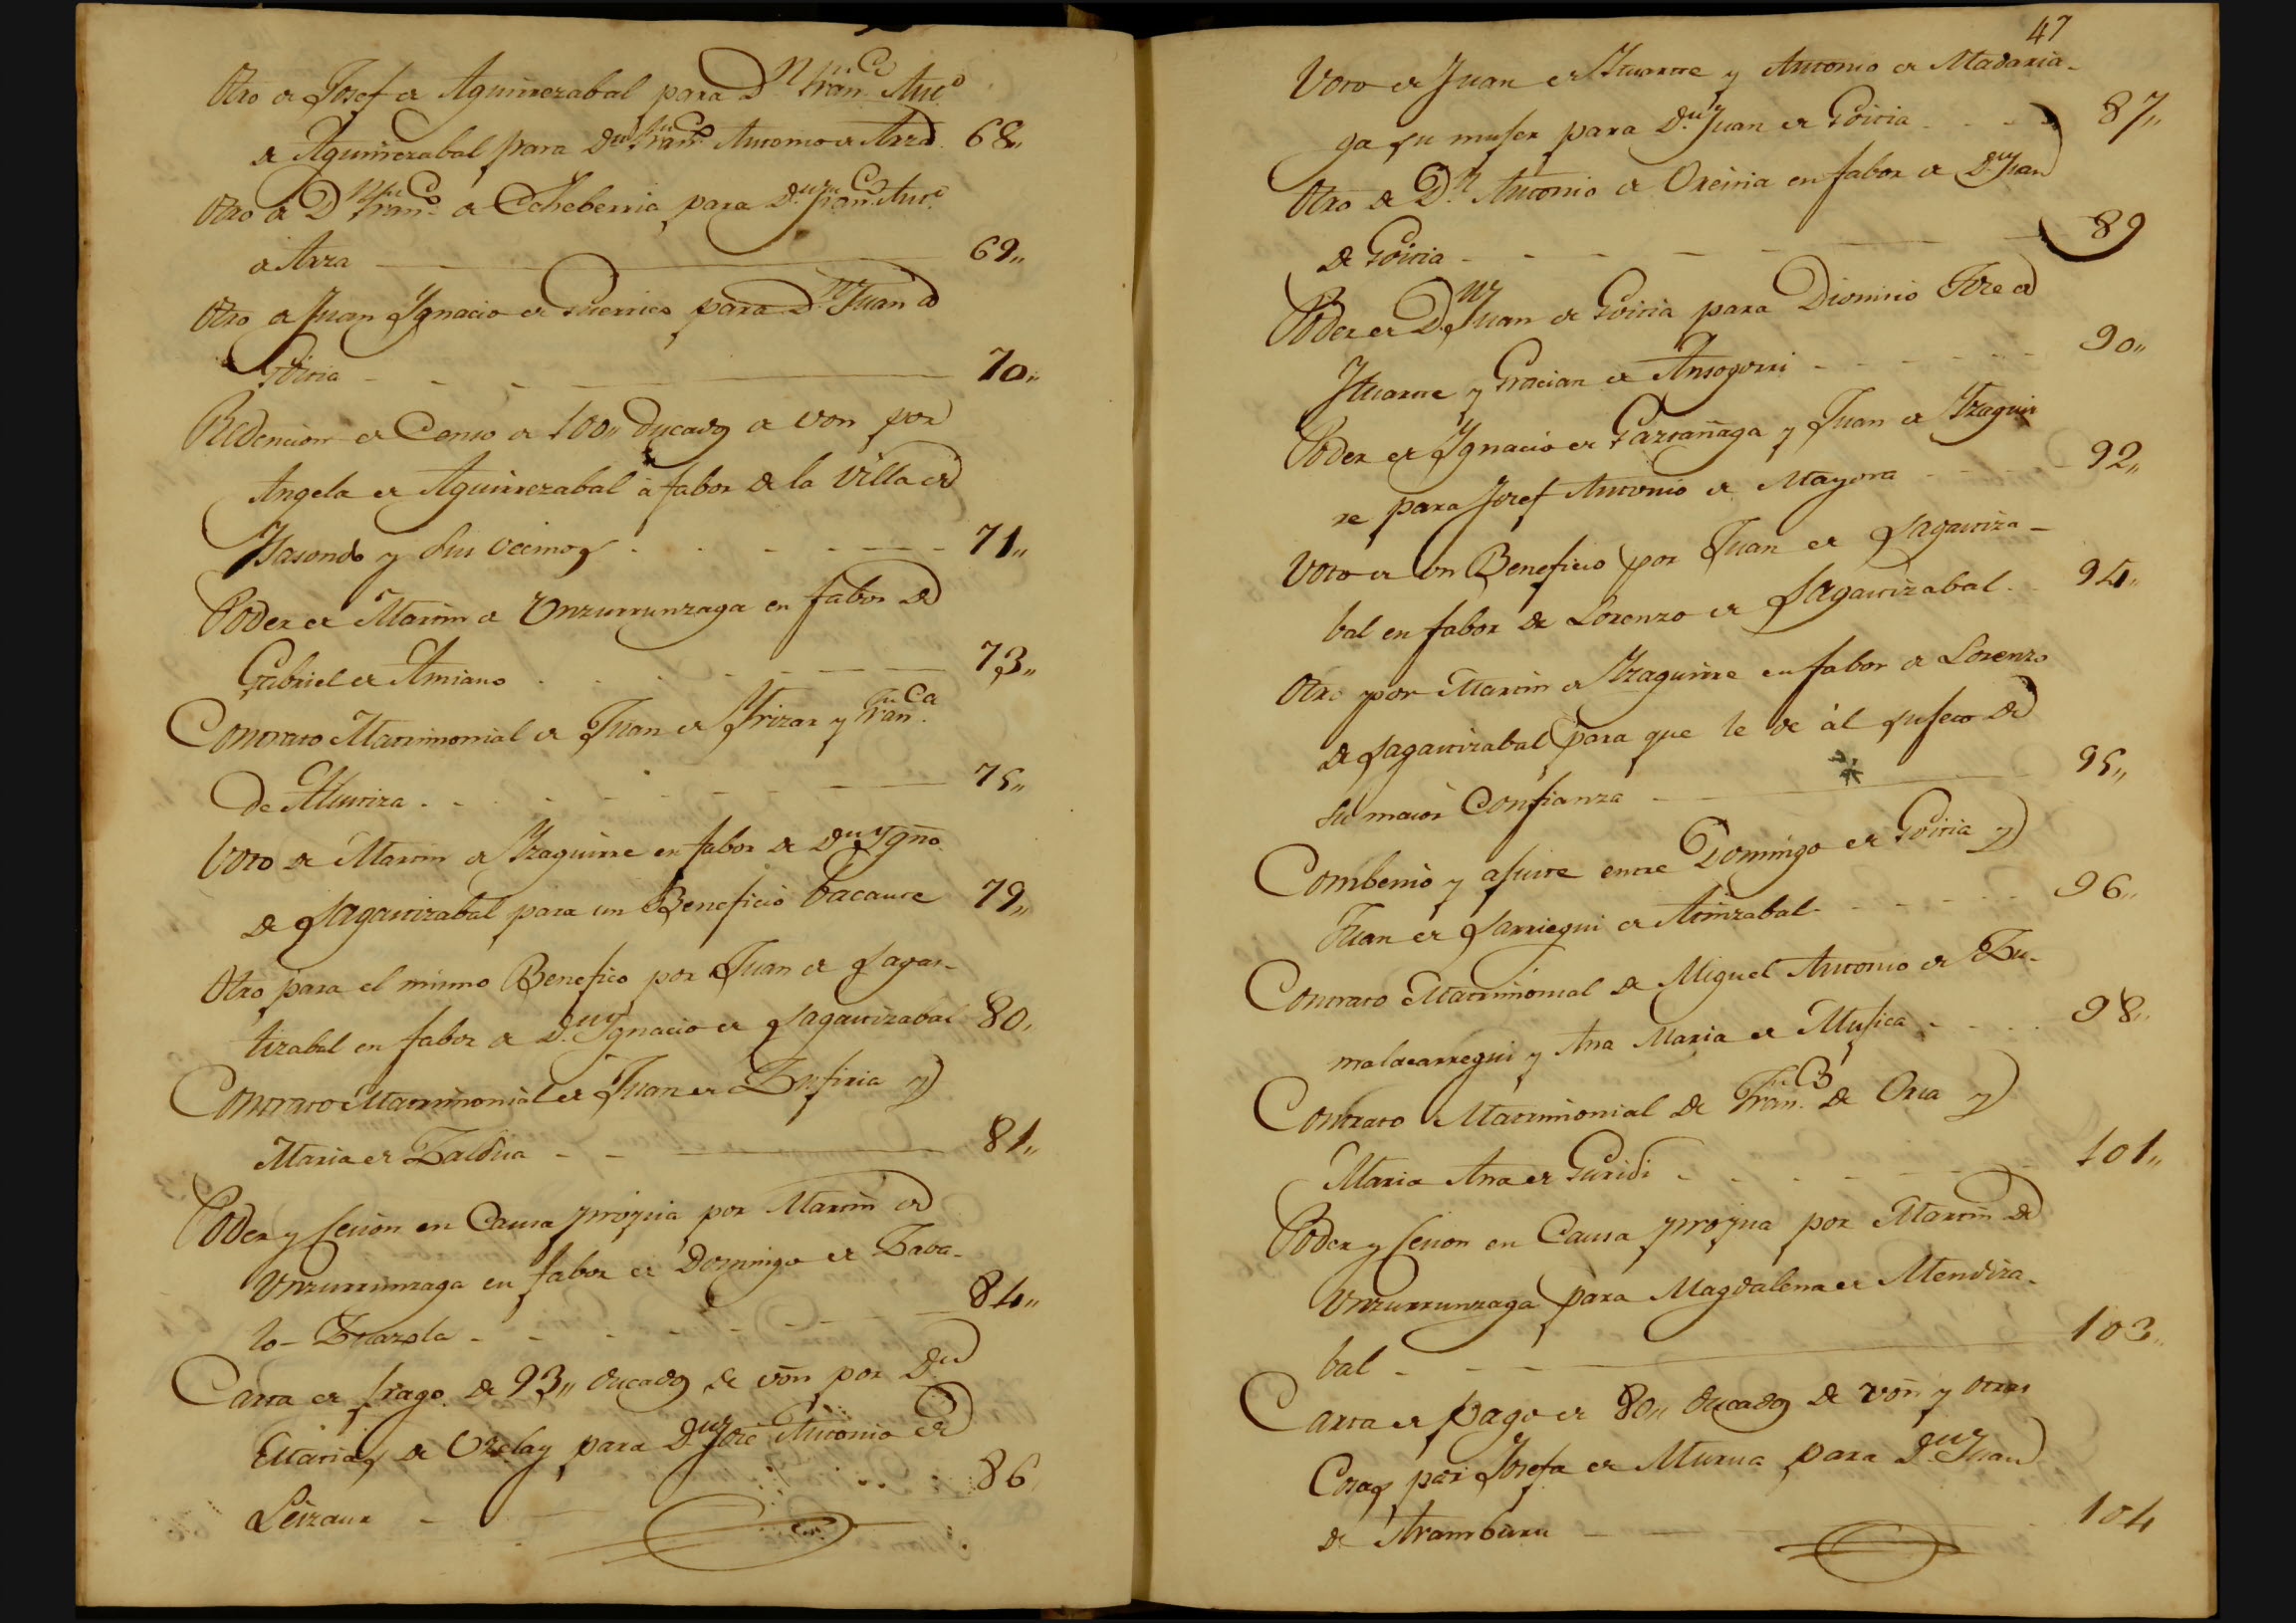 Otro de Josef de Aguirrezabal para Dn Franco Anto
de Aguirrezabal para Dn Franco Antonio de Arza 68,,
Otro de Dn Franco de Echeberria para Dn Franco Anto
de Arza 69,,
Otro de Juan Ygnacio de Guerrico para Dn Juan de
Goiria 70,,
Redencion de Censo de 100,, ducados de von por
Angela de Aguirrezabal à fabor de la Villa de
Ysasondo y sus vecinos 71,,
Poder de Martin de Unzurrunzaga en fabor de
Gabriel de Amiano 73,,
Contrato Matrimonial de Juan de Yrizar y Franca
de 75,,
Voto de Martin de Yzaguirre en fabor de Dn Ygno
de Sagastizabal para un Beneficio bacante 79,,
Otro para el mismo Benefico por Juan de Sagas-
tizabal en fabor de Dn Ygnacio de Sagastizabal 80,
Contrato Matrimonial de Juan de Zufiria y
Maria de Zaldua 81,,
Poder y Cesion en Causa propia por Martin de
Unzurrunzaga en fabor de Domingo de Zaba-
lo- 84,,
Carta de pago de 93,, ducados de von por Dn
Matias de Orelay para Dn Jose Antonio de
Leizaur 86
47
Voto de Juan de Ytuarte y Antonio de Madaria-
ga su muger para Dn Juan de Goiria 87,,
Otro de Dn Antonio de Oreiria en fabor de Dn Juan
de Goiria 89
Poder de Dn Juan de Goiria para Dionisio Jose de
Ytuarte y Gracian de Ansogorri 90,,
Poder de Ygnacio de Garrañaga y Juan de Yzaguir
re para Josef Antonio de Mayora 92,,
Voto de un Beneficio por Juan de Sagastiza-
bal en fabor de Lorenzo de Sagastizabal 94,,
Otro por Martin de Yzaguirre en fabor de Lorenzo
de Sagastizabal para que le de àl sugeto de
su maior Confianza 95,,
Combenio y ajuste entre Domingo de Goiria y
Juan de Sarriegui de Atinzabal 96,,
Contrato Matrimonial de Miguel Antonio de Zu-
malacarregui y Ana Maria de Mugica 98,,
Contrato Matrimonial de Franco de Oria y
Maria Ana de Guridi 101,,
Poder y Cesion en Causa propia por Martin de
Unzurrunzaga para Magdalena de Mendiza-
bal 103,,
Carta de pago de 80,, ducados de von y otras
Cosas por Josefa de Murua para Dn Juan
de Aramburu 104